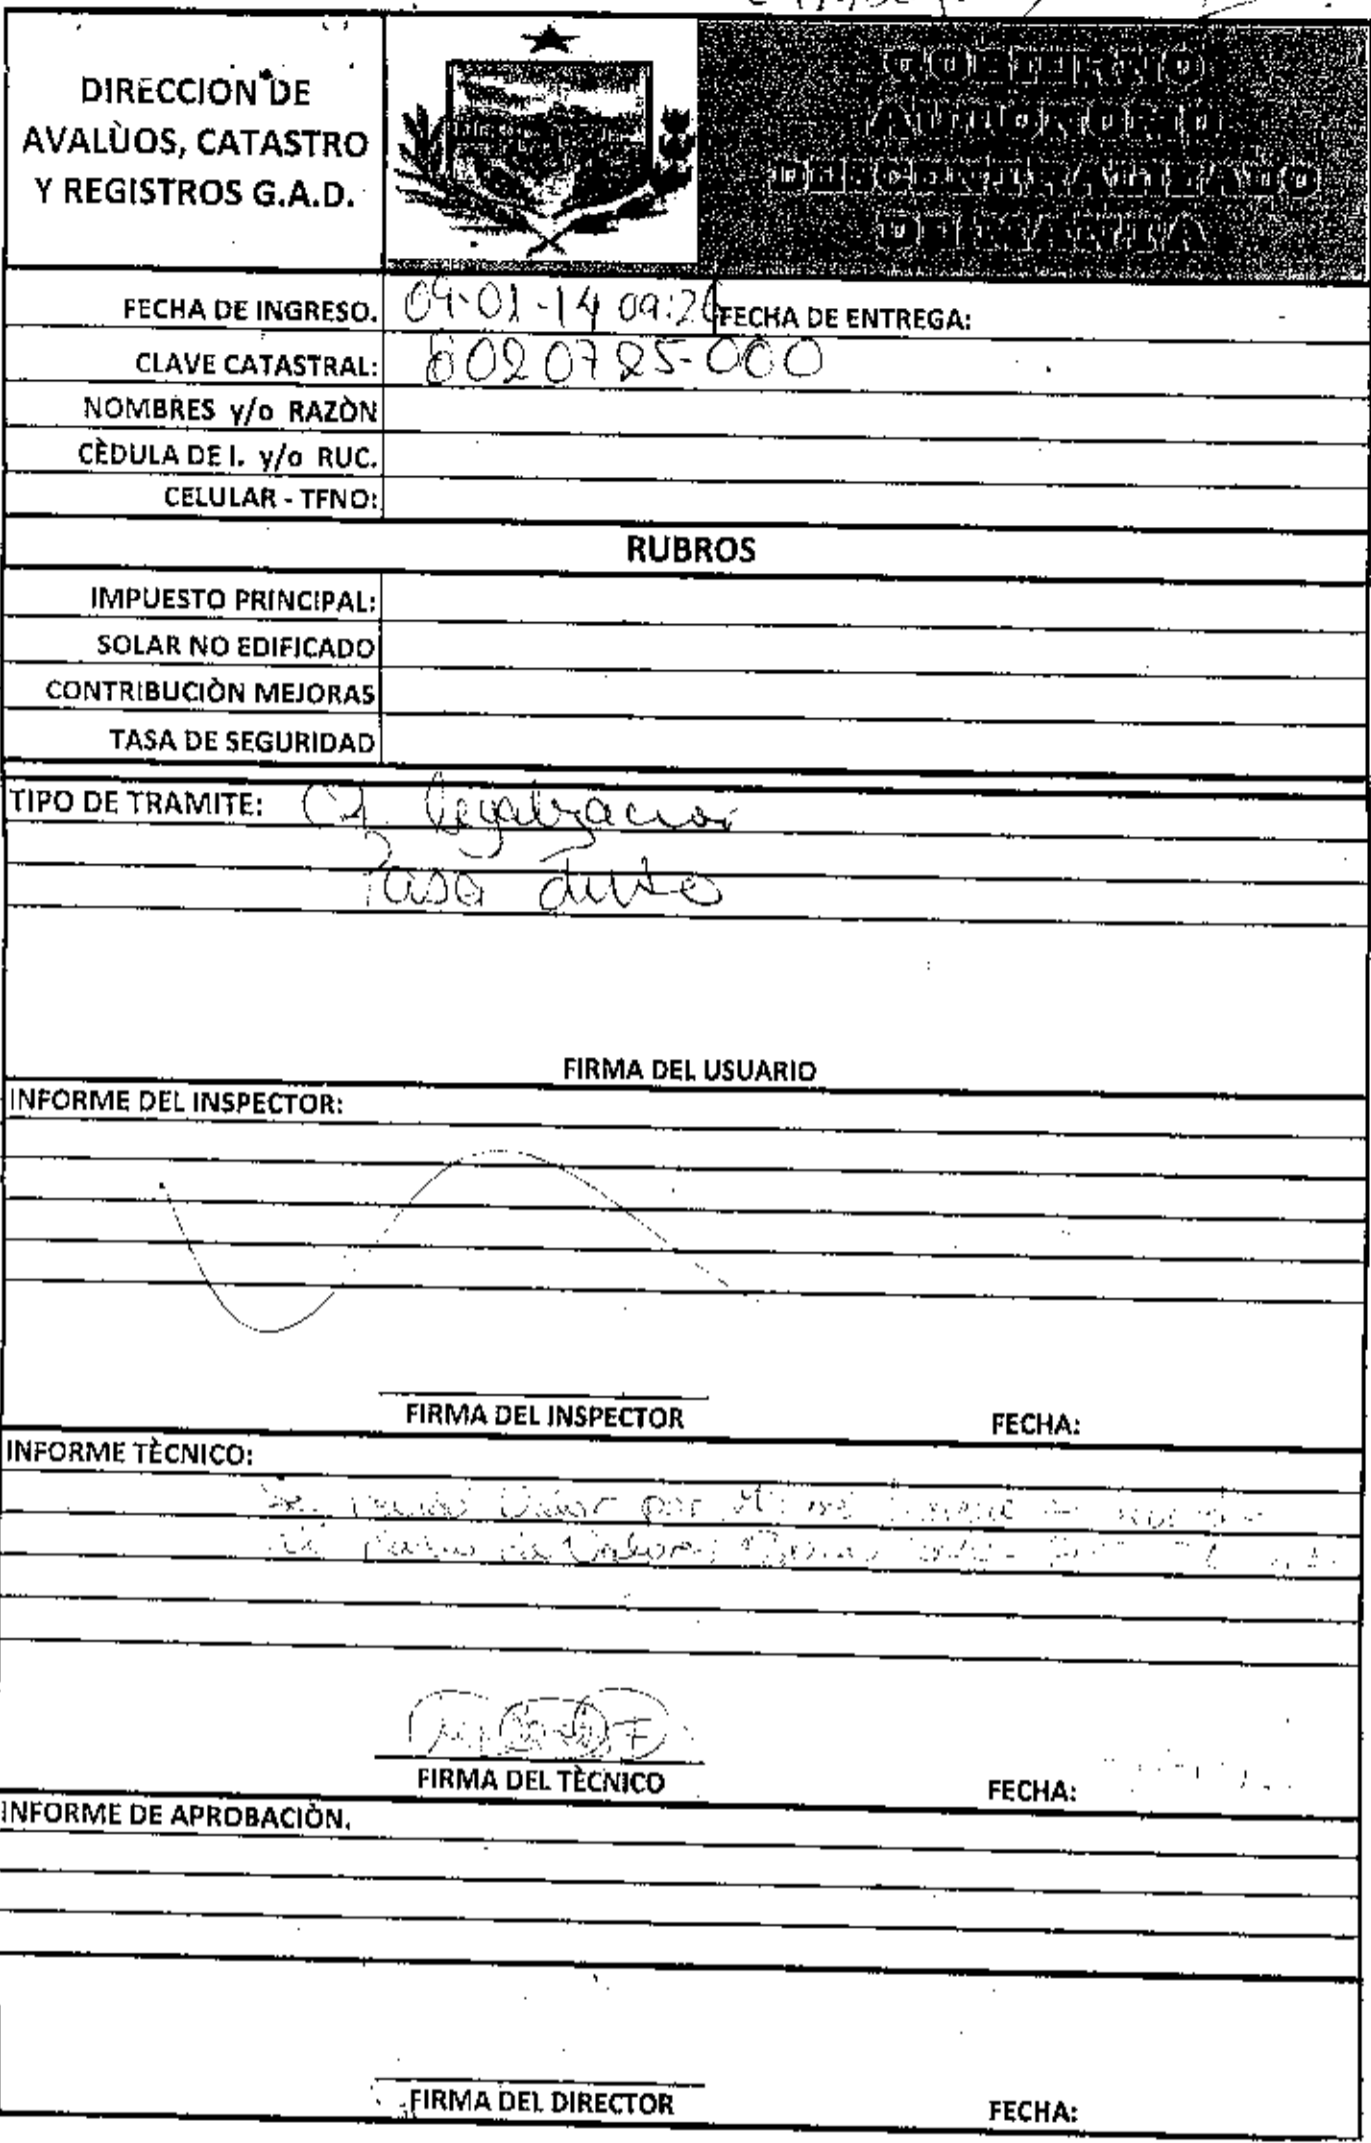 DIRECCION DE
AVALÙOS, CATASTRO
Y REGISTROS G.A.D.
GOBIERNO
AUTONOMO
DESCENTRALIZADO
DE MANTA
FECHA DE INGRESO. 09-01-14 09:26 FECHA DE ENTREGA:
CLAVE CATASTRAL: 6020725-000
NOMBRES y/o RAZÒN
CÈDULA DE I. y/o RUC.
CELULAR - TFNO:
RUBROS
IMPUESTO PRINCIPAL:
SOLAR NO EDIFICADO
CONTRIBUCIÒN MEJORAS
TASA DE SEGURIDAD
TIPO DE TRAMITE: legalizacion
FIRMA DEL USUARIO
INFORME DEL INSPECTOR:
FIRMA DEL INSPECTOR FECHA:
INFORME TÈCNICO:
por
FIRMA DEL TÈCNICO FECHA:
INFORME DE APROBACIÒN.
FIRMA DEL DIRECTOR FECHA: